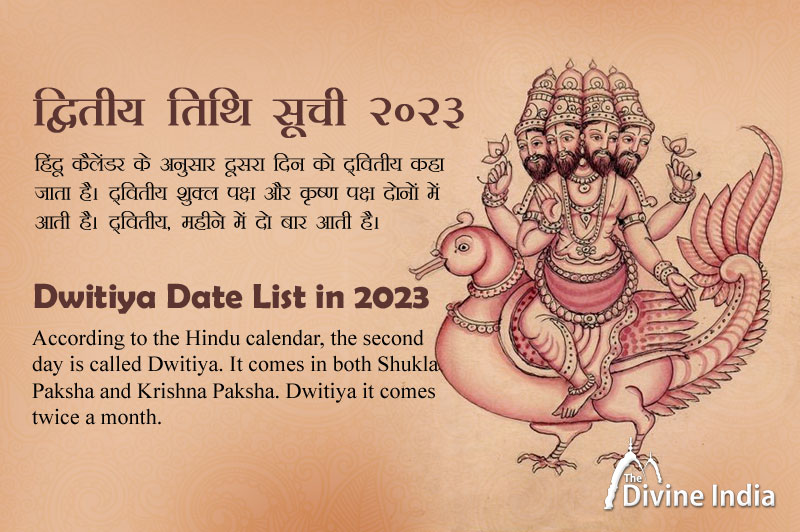 द्वितीय तिथि सूची २०२३
हिंदू कैलेंडर के अनुसार दूसरा दिन को द्वितीय कहा
जाता है। द्वितीय शुक्ल पक्ष और कृष्ण पक्ष दोनों में
आती है। द्वितीय, महीने में दो बार आती है।
Dwitiya Date List in 2023
According to the Hindu calendar, the second
day is called Dwitiya. It comes in both Shukla
Paksha and Krishna Paksha. Dwitiya it comes
twice a month.
The
Divine India